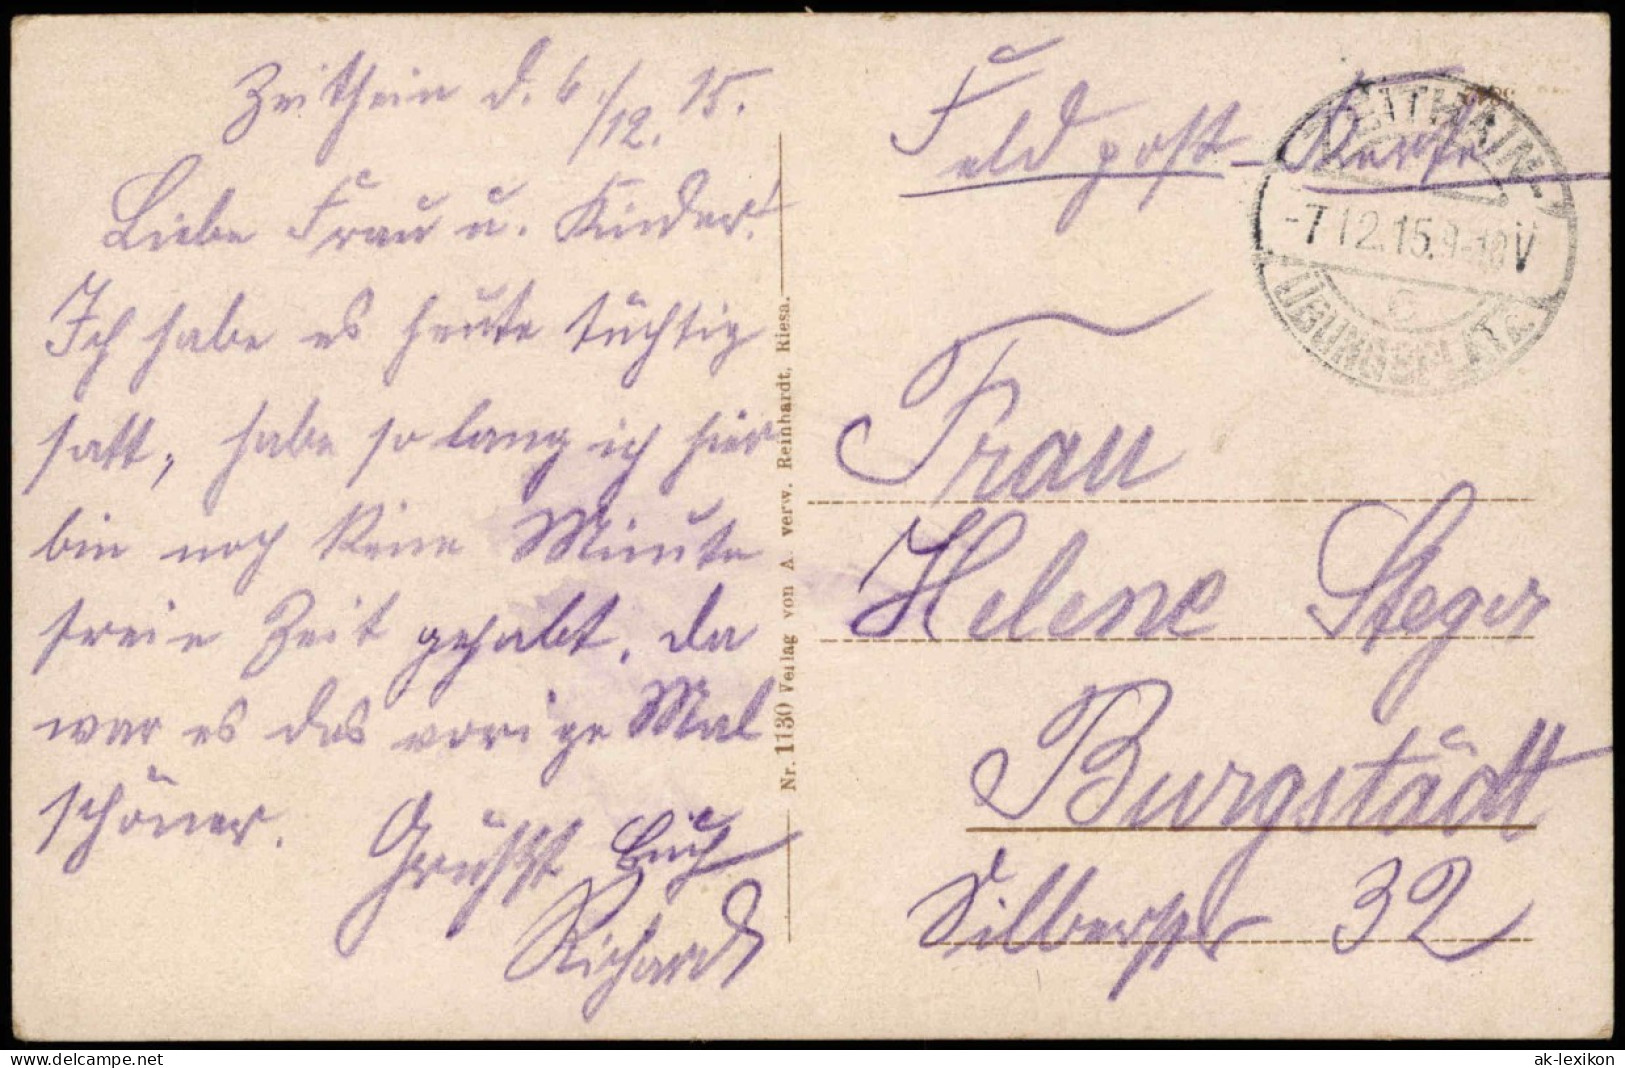 Zeithein d. 6./12. 15.
Liebe Frau u. Kinder!
Ich habe es heute tüchtig
satt, habe so lang ich hier
bin noch keine Minute
freie Zeit gehabt, da
war es das vorige Mal
schöner. Grüsst Euch
Richard
Nr. 1130 Verlag von A. verw. Reinhardt, Riesa.
Feldpost-Karte
ZEITHAIN-
-7.12.15.9-10V
c
ÜBUNGSPLATZ
Frau
Helene Steger
Burgstädt
Silberstr 32
delcampe.net
ak-lexikon